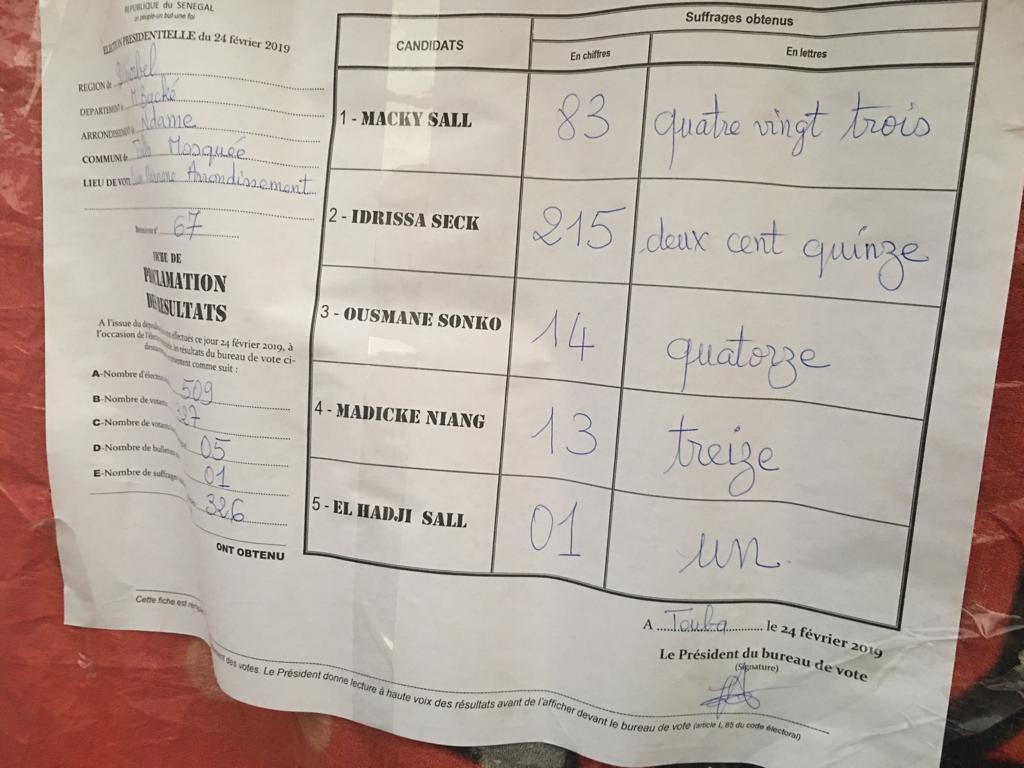 REPUBLIQUE DU SENEGAL
un peuple-un but-une foi
ELECTION PRESIDENTIELLE du 24 février 2019
REGION de
DEPARTEMENT Mbacké
ARRONDISSEMENT Ndame
COMMUNE de Touba Mosquée
LIEU DE VOTE Arrondissement
67
FICHE DE
PROCLAMATION
DES RESULTATS
A l'issue du effectués ce jour 24 février 2019, à
l'occasion de résultats du bureau de vote ci-
comme suit :
A-Nombre 509
B-Nombre de 327
C-Nombre de
D-Nombre de 05
E-Nombre de 01
326
ONT OBTENU
CANDIDATS
Suffrages obtenus
En chiffres
En lettres
1 - MACKY SALL 83 quatre vingt trois
2 - IDRISSA SECK 215 deux cent quinze
3 - OUSMANE SONKO 14 quatorze
4 - MADICKE NIANG 13 treize
5 - EL HADJI SALL 01 un
A ... Touba ... le 24 février 2019
Le Président du bureau de vote
(Signature)
Cette fiche est
des votes. Le Président donne lecture à haute voix des résultats avant de l'afficher devant le bureau de vote (article L 85 du code électoral)